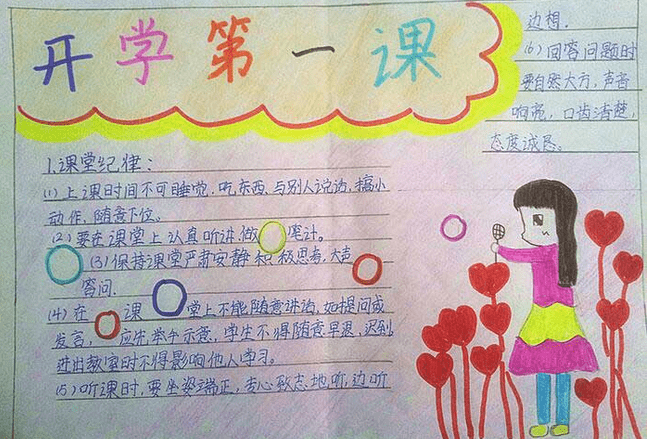 开学第一课
1.课堂纪律:
(1)上课时间不可睡觉.吃东西.与别人说话,搞小
动作,随意下位。
(2)要在课堂上认真听讲,做笔计。
(3)保持课堂严肃安静积极思考,大声
答问.
(4)在课堂上不能随意讲话,如提问或
发言,应先举手示意,学生不得随意早退,迟到
进出教室时不得影响他人学习。
(5)听课时,要坐姿端正,专心致志地听,边听
边想.
(6)回答问题时
要自然大方,声音
响亮,口齿清楚,
态度诚恳。